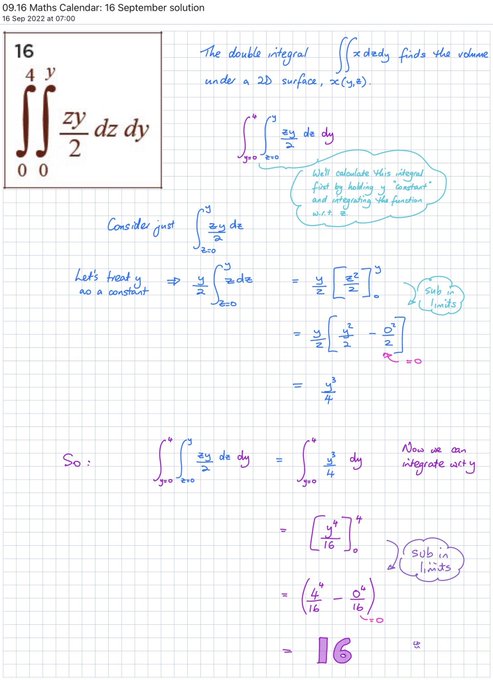 09.16 Maths Calendar: 16 September solution
16 Sep 2022 at 07:00
16
∫₀⁴ ∫₀ʸ zy/2 dz dy
The double integral ∬ x dzdy finds the volume
under a 2D surface, x(y,z).
∫_{y=0}^{4} ∫_{z=0}^{y} zy/2 dz dy
We'll calculate this integral
first by holding y "constant"
and integrating the function
w.r.t. z
Consider just ∫_{z=0}^{y} zy/2 dz
Let's treat y
as a constant
⇒ y/2 ∫_{z=0}^{y} z dz = y/2 [z²/2]₀ʸ
sub in
limits
= y/2 [y²/2 - 0²/2]
=0
= y³/4
So: ∫_{y=0}^{4} ∫_{z=0}^{y} zy/2 dz dy = ∫_{y=0}^{4} y³/4 dy
Now we can
integrate wrt y
= [y⁴/16]₀⁴
sub in
limits
= (4⁴/16 - 0⁴/16)
=0
= 16